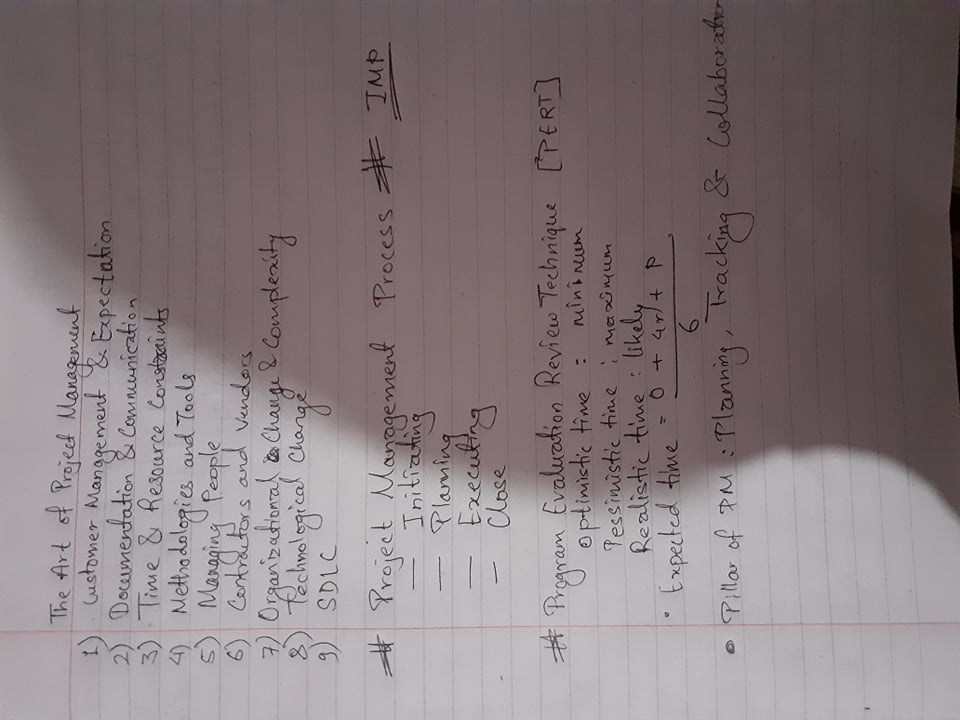 The Art of Project Management
1) Customer Management & Expectation
2) Documentation & Communication
3) Time & Resource Constraints
4) Methodologies and Tools
5) Managing People
6) Contractors and Vendors
7) Organizational Change & Complexity
8) Technological Change
9) SDLC
# Project Management Process # IMP
— Initiating
— Planning
— Executing
— Close
# Program Evaluation Review Technique [PERT]
Optimistic time : minimum
Pessimistic time : maximum
Realistic time : likely
• Expected time = O + 4r + P
6
• Pillar of PM : Planning, Tracking & Collaboration